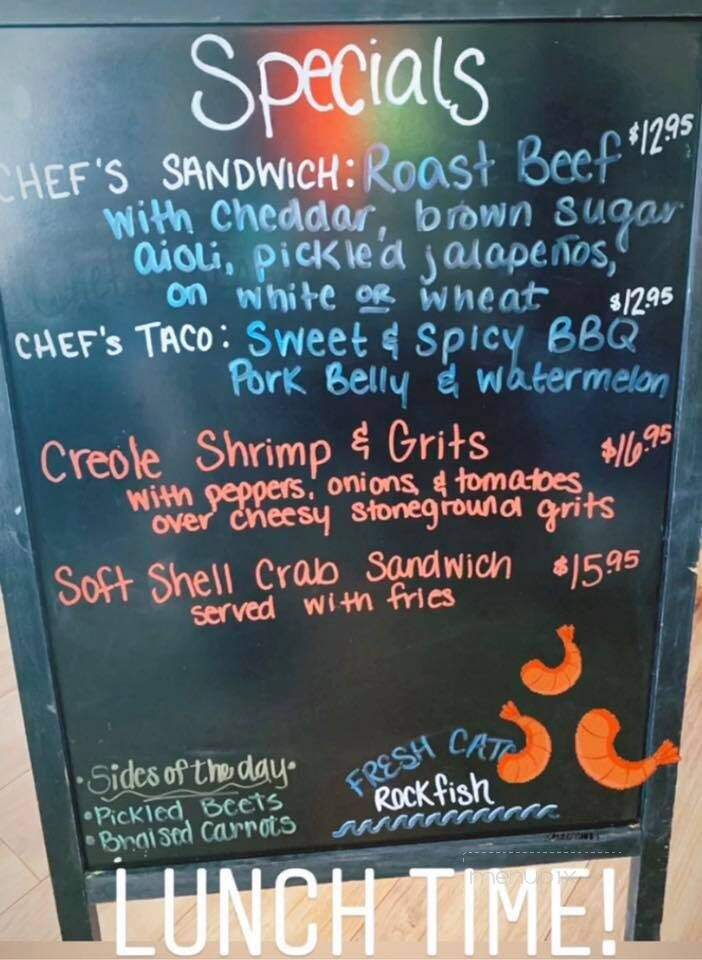 Specials
CHEF'S SANDWICH: Roast Beef $12.95
with Cheddar, brown sugar
aioli, pickled jalapeños,
on white OR wheat
CHEF'S TACO: Sweet & Spicy BBQ $12.95
Pork Belly & watermelon
Creole Shrimp & Grits $16.95
with peppers, onions, & tomatoes
over cheesy stoneground grits
Soft Shell Crab Sandwich $15.95
served with fries
•Sides of the day•
•Pickled Beets
•Braised Carrots
FRESH
Rockfish
menupix
LUNCH TIME!